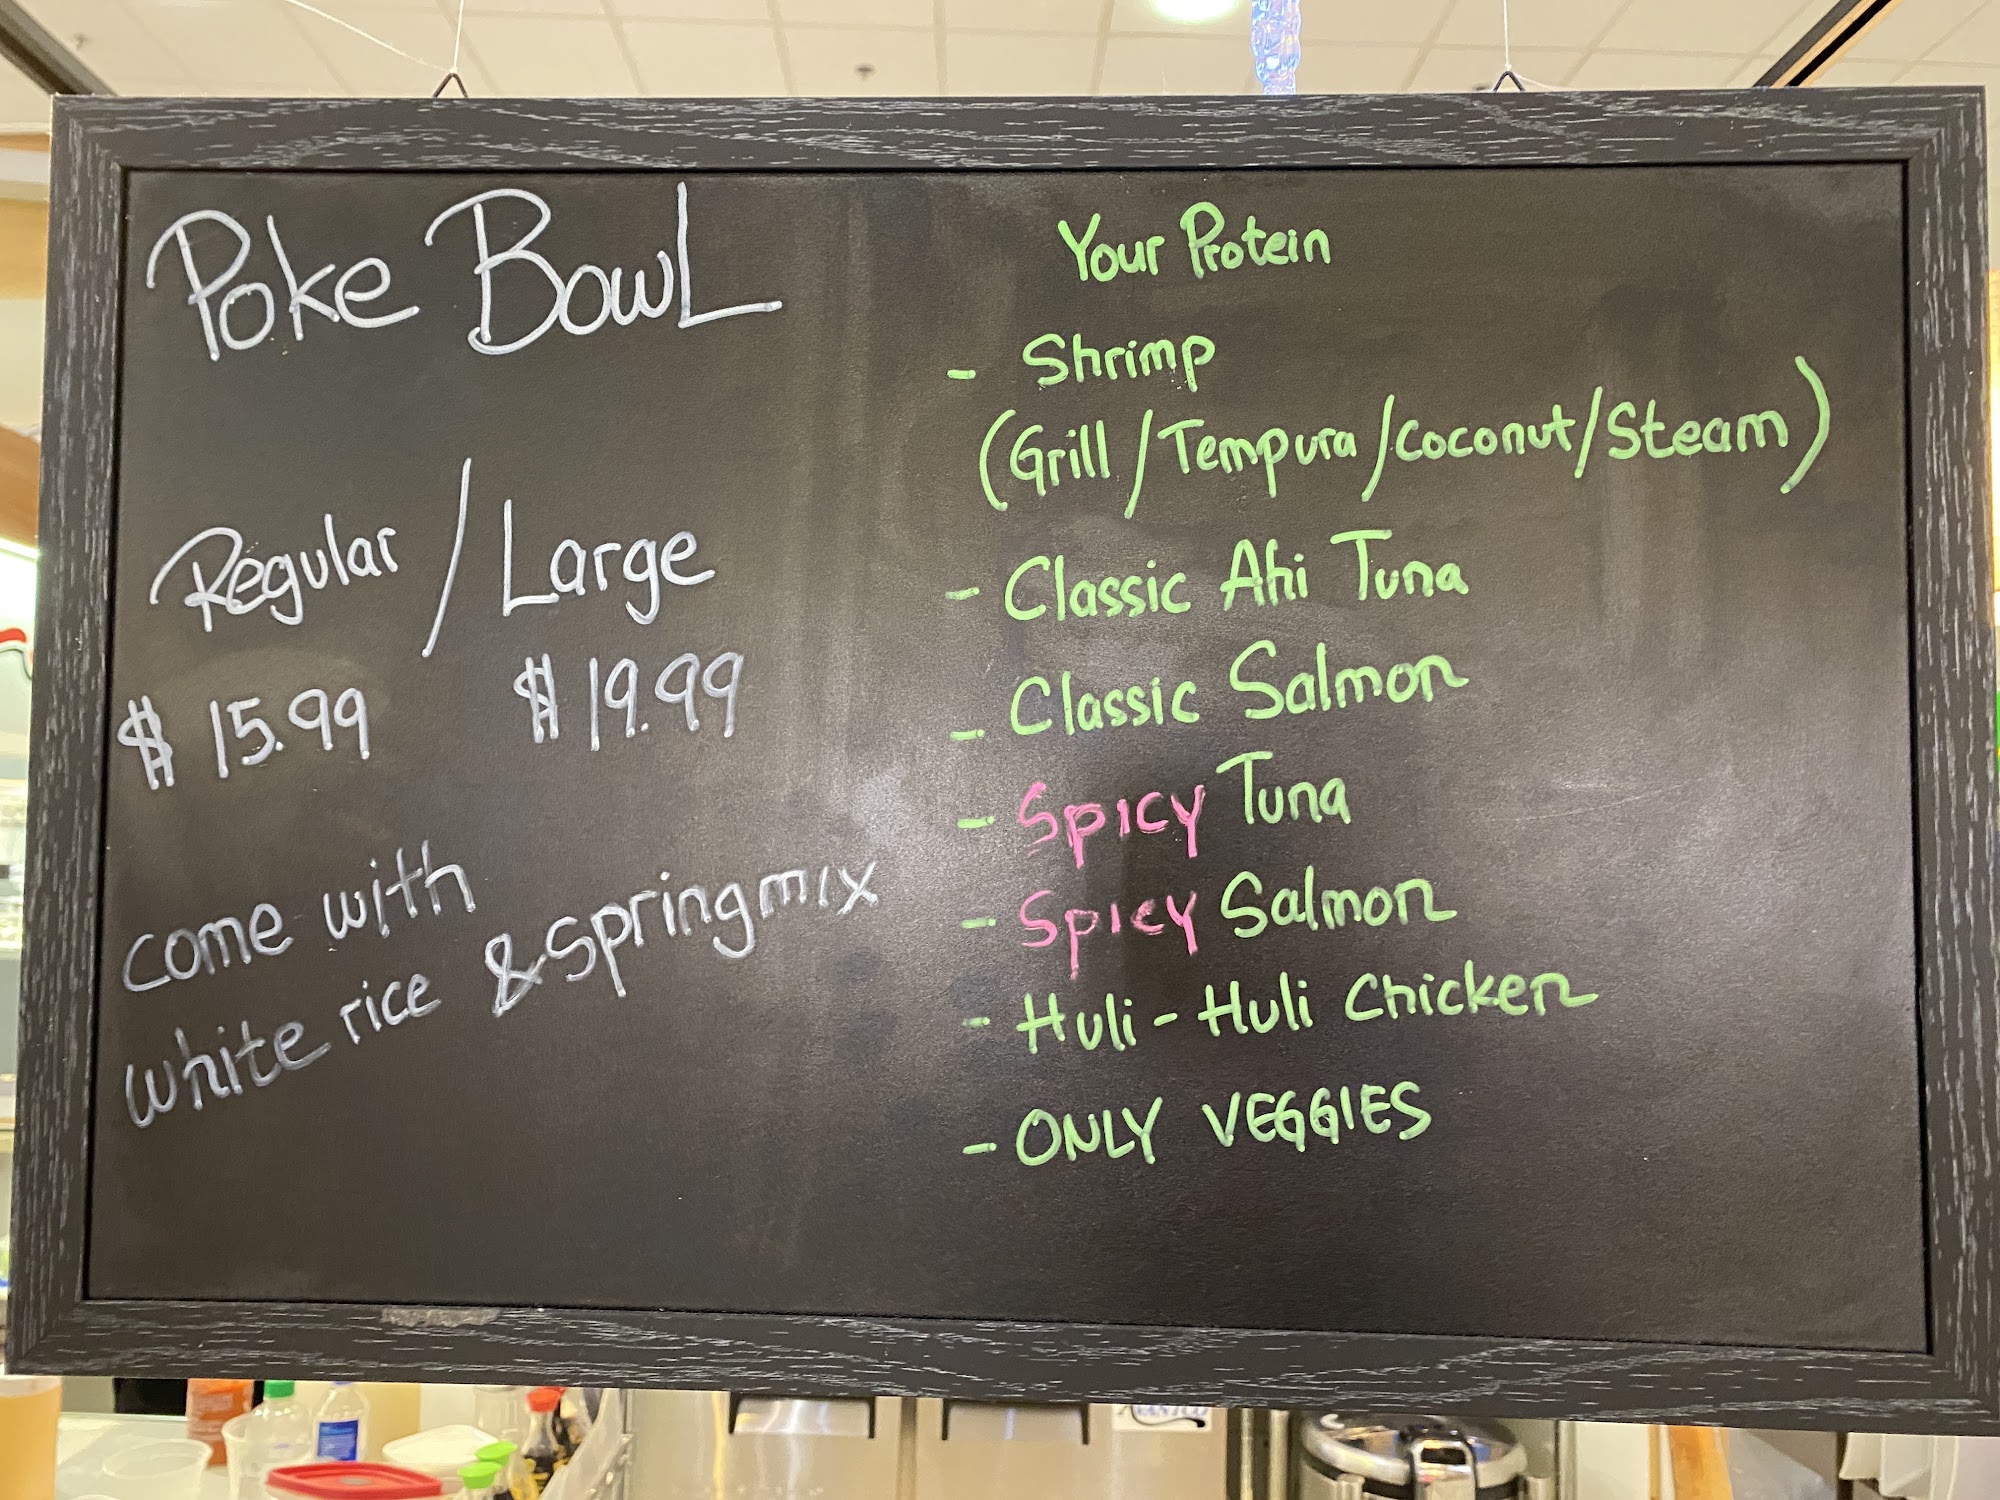 Poke Bowl
Regular / Large
$ 15.99 $ 19.99
come with
white rice & spring mix
Your Protein
- Shrimp
(Grill / Tempura / coconut / Steam)
- Classic Ahi Tuna
- Classic Salmon
- Spicy Tuna
- Spicy Salmon
- Huli - Huli Chicken
- ONLY VEGGIES